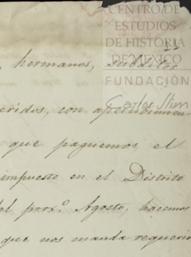 CENTRO DE
ESTUDIOS
DE HISTORIA
DE MEXICO
FUNDACIÓN
Carlos Slim
, hermanos,
eridos, con apercibimien
que paguemos el
impuesto en el Distrito
del prox.º Agosto, hacemos
que nos manda requerir